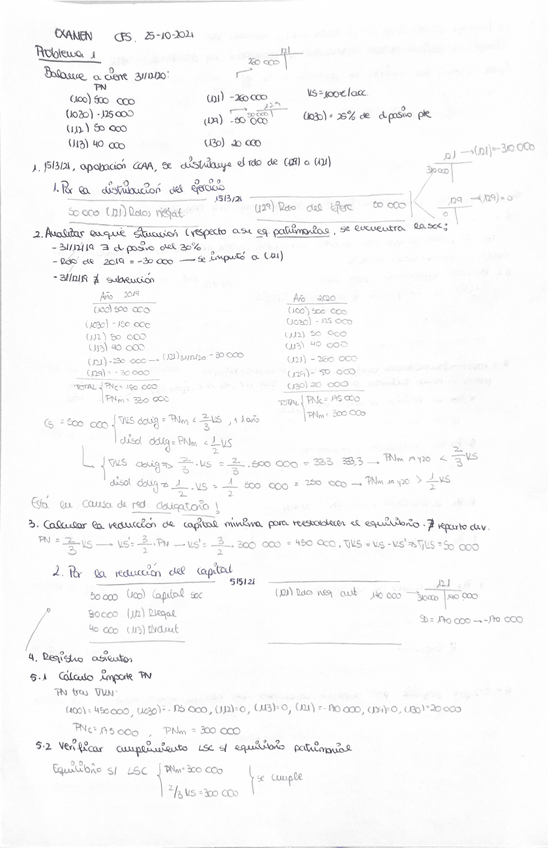 EXAMEN CFS. 25-10-2021
Problema 1
121
260 000
Balance a cierre 31/12/20:
PN
(100) 500 000
(1030) -125 000
(112) 50 000
(113) 40 000
(121) -260 000
129
50 000
(129) -50 000
(130) 20 000
VS=100€/acc.
(1030) = 25% de d.pasivo pte
1. 15/3/21, aprobación CCAA, se distribuye el rdo de (129) a (121)
1. Por la distribución del ejercicio
15/3/21
50 000 (121) Rdos negat (129) Rdo del ejerc 50 000
121 → (121) = -310 000
310 000
129 → (129) = 0
0
2. Analizar en que situación (respecto a su eq patrimonial, se encuentra la soc:
- 31/12/19 ∃ d pasivo del 30%
- Rdo de 2019 = -30 000 → se imputó a (121)
- 31/12/19 ∄ subvención
Año 2019
(100) 500 000
(1030) -150 000
(112) 50 000
(113) 40 000
(121) -230 000 → (121) 31/12/20 - 30 000
(129) = -30 000
TOTAL PNc = 180 000
PNm = 330 000
Año 2020
(100) 500 000
(1030) -125 000
(112) 50 000
(113) 40 000
(121) -260 000
(129) - 50 000
(130) 20 000
TOTAL PNc = 175 000
PNm = 300 000
CS = 500 000 ∇KS oblig = PNm < 2/3 KS, 1 año
disol oblig = PNm < 1/2 KS
∇KS oblig ⇒ 2/3 · KS = 2/3 · 500 000 = 333 333,3 → PNm 19 y 20 < 2/3 KS
disol oblig ⇒ 1/2 · KS = 1/2 500 000 = 250 000 → PNm 19 y 20 > 1/2 KS
Está en causa de red. obligatoria!
3. Calcular la reducción de capital mínima para reestablecer el equilibrio. ∄ reparto div.
PN = 2/3 KS → KS' = 3/2 · PN → KS' = 3/2 · 300 000 = 450 000. ∇KS = KS - KS' ⇒ ∇KS = 50 000
2. Por la reducción del capital
5/5/21
50 000 (100) Capital soc (121) Rdos neg ant 140 000
50 000 (112) R legal
40 000 (113) R volunt
121
310 000 140 000
SD = 170 000 → -170 000
4. Registro asientos
5.1 Cálculo importe PN
PN tras ∇KN:
(100) = 450 000, (1030) = -125 000, (112) = 0, (113) = 0, (121) = -170 000, (129) = 0, (130) = 20 000
PNc = 175 000, PNm = 300 000
5.2 Verificar cumplimiento LSC s/ equilibrio patrimonial
Equilibrio s/ LSC PNm = 300 000
2/3 KS = 300 000
se cumple